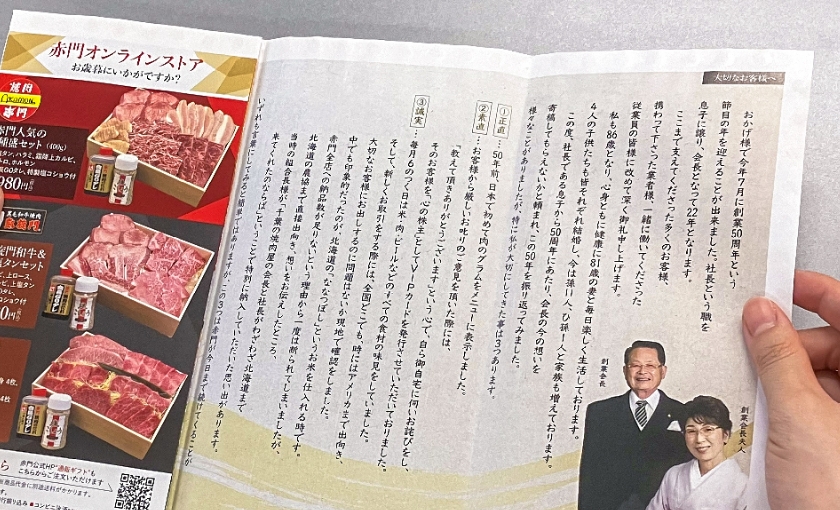 大切なお客様へ
おかげ様で今年7月に創業50周年という
節目の年を迎えることが出来ました。社長という職を
息子に譲り、会長となって22年となります。
ここまで支えてくださった多くのお客様、
携わって下さった業者様、一緒に働いてくださった
従業員の皆様に改めて深く御礼申し上げます。
私も86歳となり、心身ともに健康に81歳の妻と毎日楽しく生活しております。
4人の子供たちも皆それぞれ結婚し、今は孫11人、ひ孫1人と家族も増えております。
この度、社長である息子から50周年にあたり、会長の今の想いを
寄稿してもらえないかと頼まれ、この50年を振り返ってみました。
様々なことがありましたが、特に私が大切にしてきた事は3つあります。
①正直 … 50年前、日本で初めて肉のグラムをメニューに表示しました。
②素直 … お客様から厳しいお叱りのご意見を頂いた際には、
「教えて頂きありがとうございます」という心で、自ら御自宅に伺いお詫びをし、
そのお客様を、心の株主としてVIPカードを発行させていただいておりました。
③誠実 … 毎月6のつく日は米・肉・ビールなどのすべての食材の味見をしていました。
そして、新しくお取引をする際には、全国どこでも、時にはアメリカまで出向き、
大切なお客様にお出しするのに問題はないか現地で確認をしました。
中でも印象的だったのが、北海道の、ななつぼしというお米を仕入れる時です。
赤門全店への納品数が足りないという理由から一度は断られてしまいましたが、
北海道の農協まで直接出向き、想いをお伝えしたところ、
当時の組合長様が、千葉の焼肉屋の会長と社長がわざわざ北海道まで
来てくれたのならばということで特別に納入していただいた思い出があります。
いずれも言葉にしてみると簡単ではありますが、この3つは赤門が今日まで続けてくることが
創業会長
創業会長夫人
赤門オンラインストア
お歳暮にいかがですか?
焼肉
赤門
赤門人気の
盛セット(400g)
タン、ハラミ、霜降上カルビ、
トロ、ホルモン
タレ、特製塩コショウ付
980円
黒毛和牛焼肉
門和牛&
タンセット
上ロース
上塩タン
コショウ付
0円
各4枚、
4枚
赤門公式HP"通販ギフト"も
こちらからご注文いただけます
商品代金に別途送料がかかります。